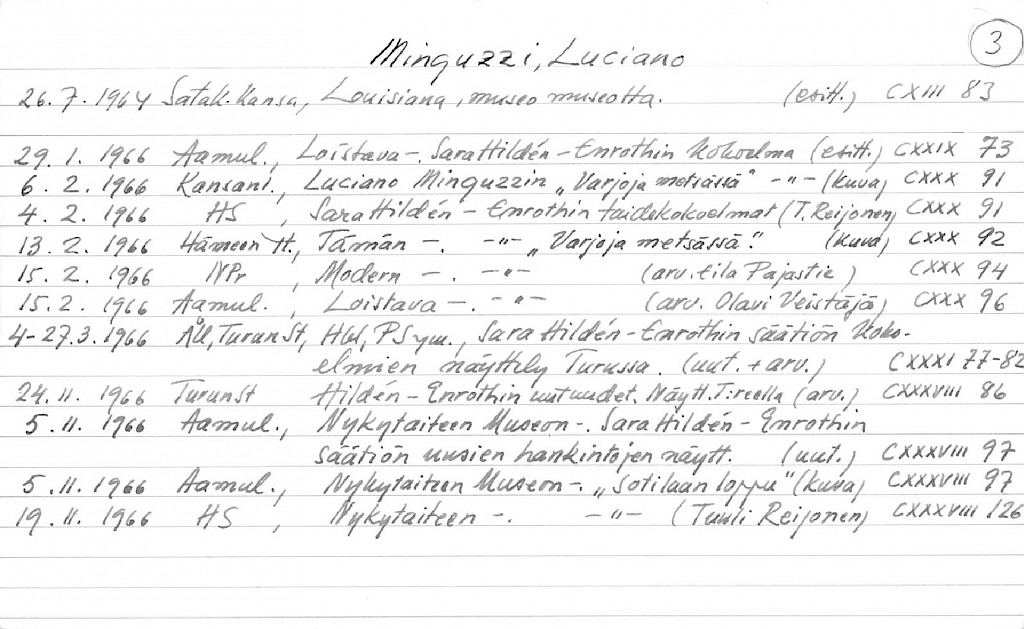 3
Minguzzi, Luciano
26.7.1964 Satak.Kansa, Louisiana, museo museotta. (esitt.) CXIII 83
29.1.1966 Aamul., Loistava-. Sara Hildén-Enrothin kokoelma (esitt.) CXXIX 73
6.2.1966 Kansanl., Luciano Minguzzin "Varjoja metsässä" -"- (kuva) CXXX 91
4.2.1966 HS, Sara Hildén-Enrothin taidekokoelmat (T.Reijonen) CXXX 91
13.2.1966 Hämeen Yt., Tämän -. -"- "Varjoja metsässä." (kuva) CXXX 92
15.2.1966 NPr, Modern -. -"- (arv. Eila Pajastie) CXXX 94
15.2.1966 Aamul., Loistava -. -"- (arv. Olavi Veistäjä) CXXX 96
4-27.3.1966 ÅU, TurunSt, Hbl, PSym., Sara Hildén-Enrothin säätiön koko-
elmien näyttely Turussa. (uut. + arv.) CXXXI 77-82
24.11.1966 TurunSt Hildén-Enrothin uutuudet. Näytt. T:reella (arv.) CXXXVIII 86
5.11.1966 Aamul., Nykytaiteen Museon-. Sara Hildén-Enrothin
säätiön uusien hankintojen näytt. (uut.) CXXXVIII 97
5.11.1966 Aamul., Nykytaiteen Museon-. "Sotilaan loppu" (kuva) CXXXVIII 97
19.11.1966 HS, Nykytaiteen -. -"- (Tuuli Reijonen) CXXXVIII 126